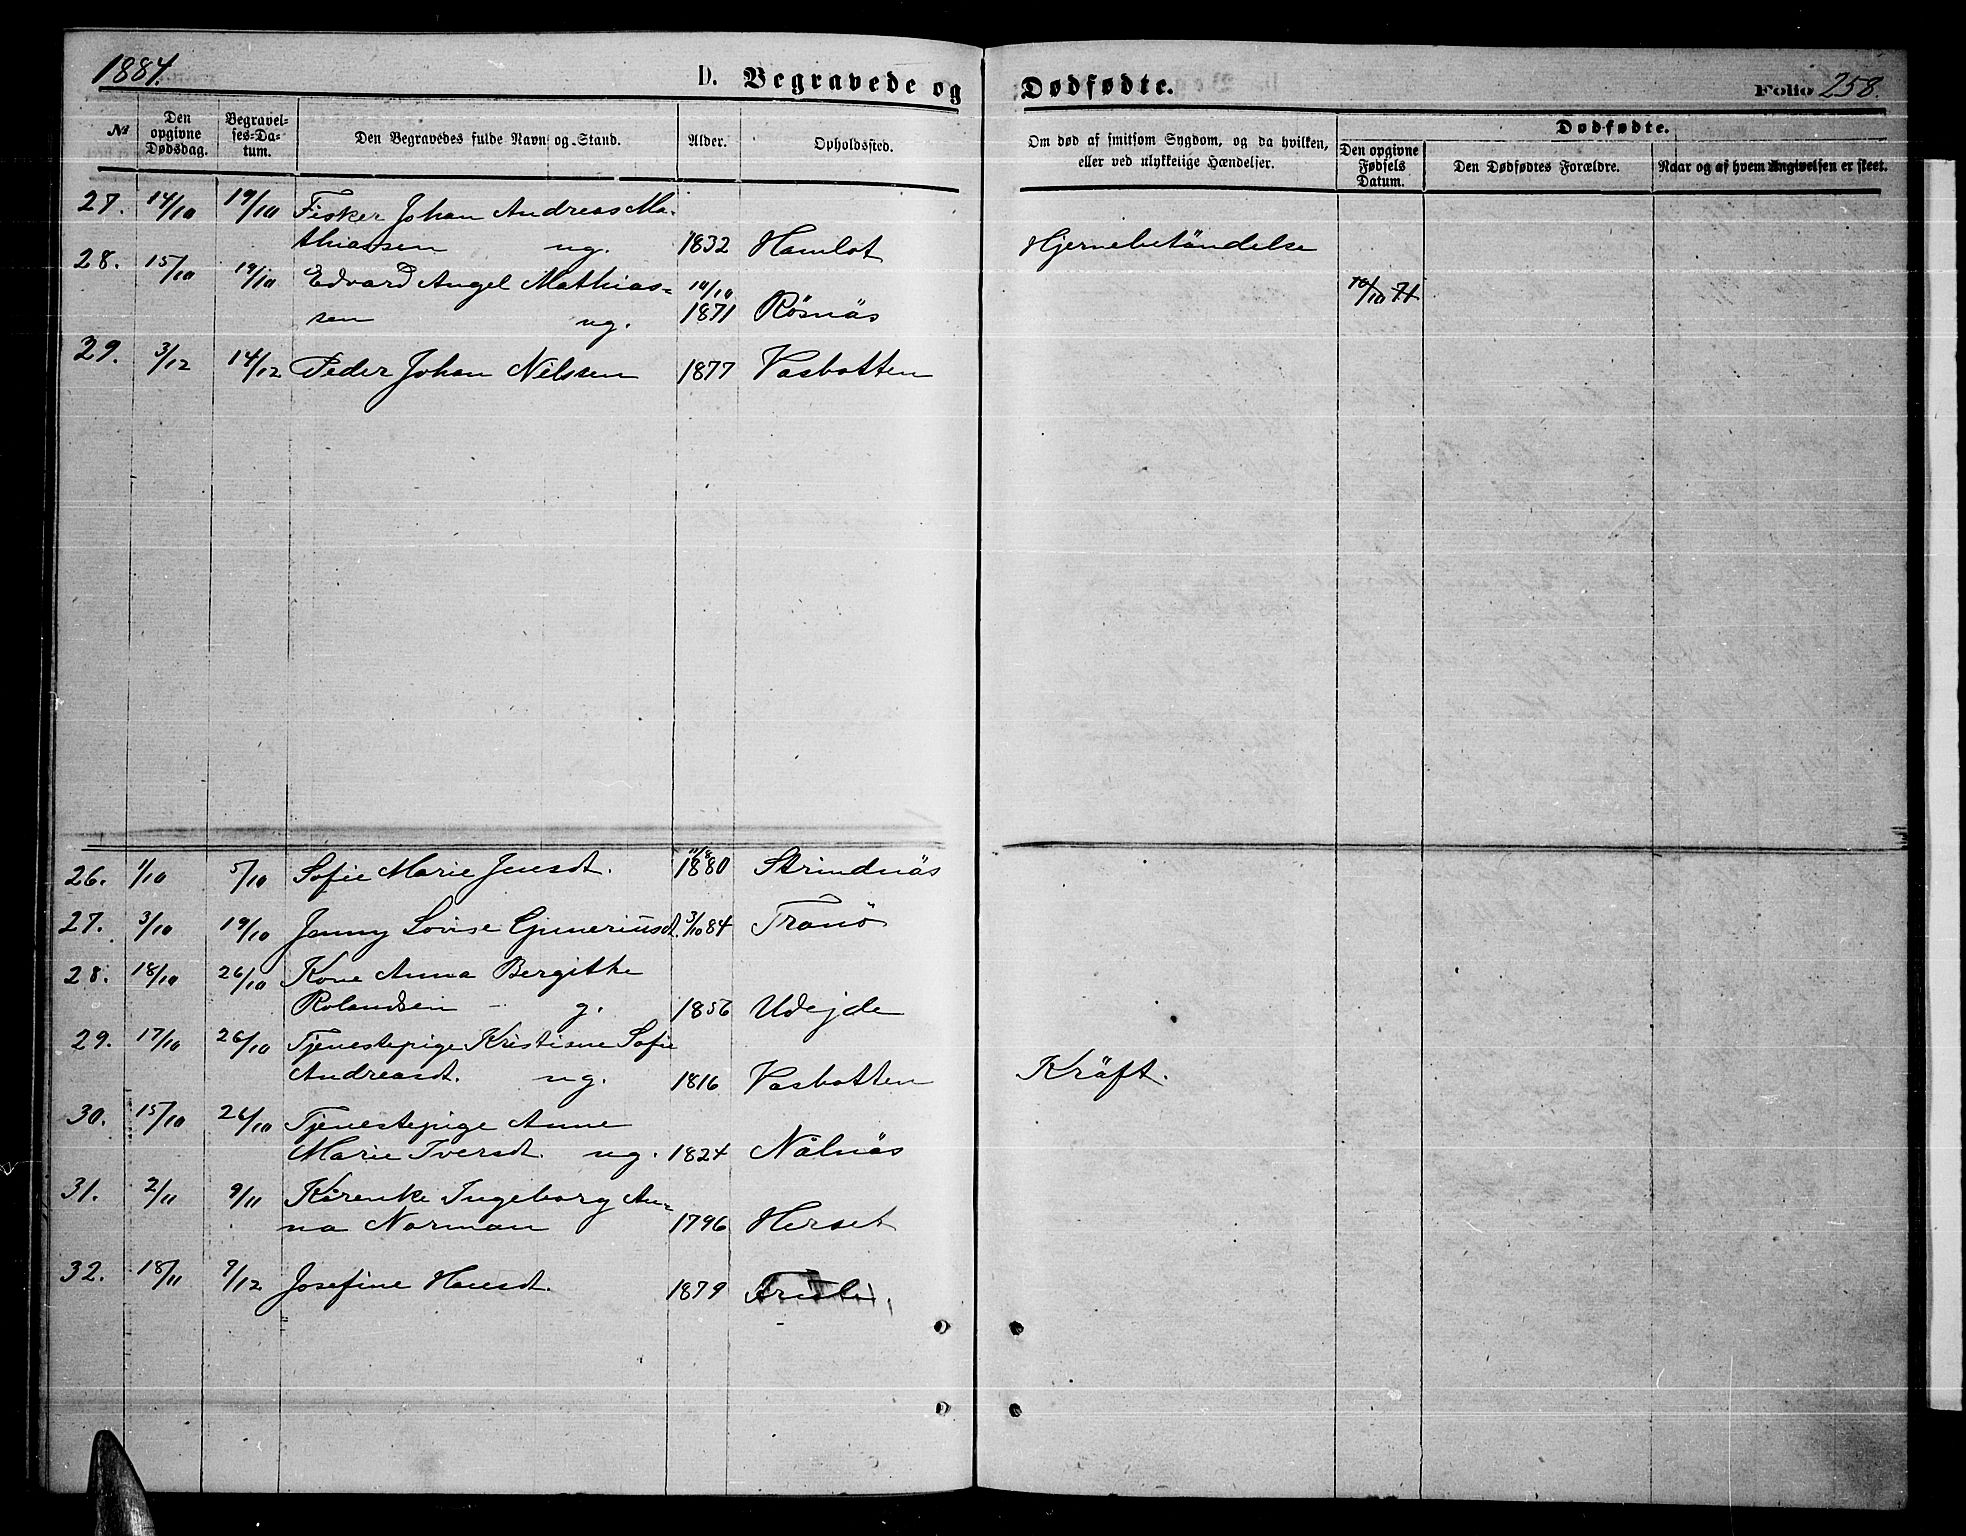 1884.
D. Begravede og Dødfødte.
Folio 258.
№
Den opgivne Dødsdag.
Begravelses-Datum.
Den Begravedes fulde Navn og Stand.
Alder.
Opholdssted.
Om død af smitsom Sygdom, og da hvilken, eller ved ulykkelige Hændelser.
Dødfødte.
Den opgivne Fødsels Datum.
Den Dødfødtes Forældre.
Naar og af hvem Angivelsen er skeet.
27. 14/10 19/10 Fisker Johan Andreas Ma-
thiassen ug. 1832 Hamlot Hjernebetändelse
28. 15/10 19/10 Edvard Angel Mathias= 10/10
sen ug. 1871 Røsnäs 10/10 71
29. 3/12 14/12 Peder Johan Nilssen 1877 Vasbotten
26. 1/10 5/10 Sofie Marie Jensdt. 1880 Strindnäs
27. 3/10 19/10 Jenny Lovise Gjuneriusdt. 3/10 84 Tranö
28. 18/10 26/10 Kone Anna Bergithe
Rolandsen - g. 1856 Udejde
29. 17/10 26/10 Tjenestepige Kristiane Sofie
Andreasdt. ug. 1816 Vasbotten Kräft.
30. 15/10 26/10 Tjenestepige Anne
Marie Iversdt. ug. 1824 Nålnäs
31. 2/11 9/11 Kårenke Ingeborg An=
na Norman 1796 Herset
32. 18/11 7/12 Josefine Hansdt. 1879